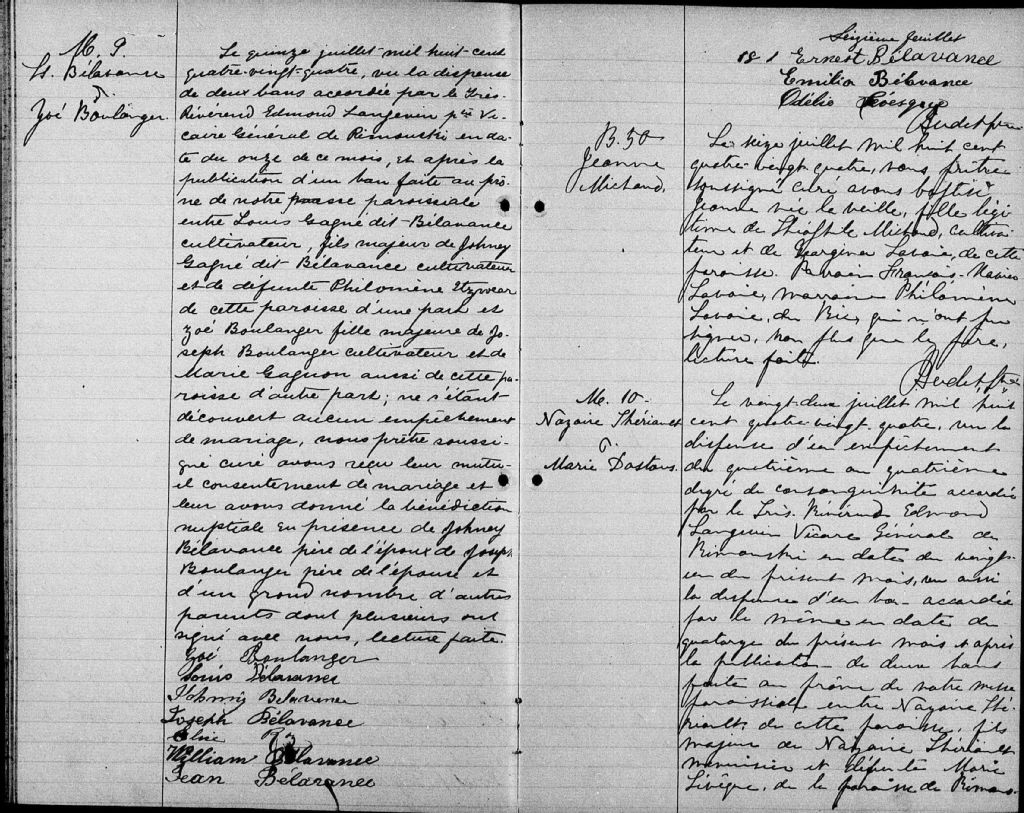 M. 9
Ls. Bélavance
&
Zoé Boulanger
Le quinze juillet mil huit cent
quatre-vingt-quatre, vu la dispense
de deux bans accordée par le Très
Révérend Edmond Langevin ptre Vi-
caire Général de Rimouski en da-
te du onze de ce mois, Et après la
publication d'un ban faite au prô-
ne de notre messe paroissiale
entre Louis Gagné dit-Bélavance
cultivateur, fils majeur de Johney
Gagné dit Bélavance cultivateur
et de défunte Philomène
de cette paroisse d'une part et
Zoé Boulanger fille majeure de Jo-
seph Boulanger cultivateur et de
Marie Gagnon aussi de cette pa-
roisse d'autre part; ne s'étant
découvert aucun empêchement
de mariage, nous prêtre soussi-
gné curé avons reçu leur mutu-
el consentement de mariage et
leur avons donné la bénédiction
nuptiale En présence de Johney
Bélavance père de l'époux de Joseph
Boulanger père de l'épouse et
d'un grand nombre d'autres
parents dont plusieurs ont
signé avec nous, lecture faite.
Zoé Boulanger
Louis Bélavance
Johnny Bélavance
Joseph Bélavance
William Bélavance
Jean Bélavance
Seizième feuillet
18 1 Ernest Bélavance
Emilia Bélavance
Odélie
Audet ptre
B. 50
Jeanne
Michaud,
Le seize juillet mil huit cent
quatre-vingt quatre, nous prêtre
soussigné curé avons baptisé
Jeanne née la veille, fille légi-
time de Théophile Michaud, cultiva-
teur et de Georgina Lavoie, de cette
paroisse. Parrain François-Xavier
Lavoie, marraine Philomène
Lavoie, du Bic, qui n'ont pu
signer, non plus que le père,
lecture faite.
Audet ptre
M. 10-
Nazaire Thériault
&
Marie Dastous.
Le vingt-deux juillet mil huit
cent quatre-vingt-quatre, vu la
dispense d'un empêchement
du quatrième au quatrième
degré de consanguinité accordée
par le Très Révérend Edmond
Langevin Vicaire Général de
Rimouski en date du vingt-
un du présent mois, vu aussi
la dispense d'un ban accordée
par le même en date du
quatorze du présent mois et après
la publication de deux bans
faite au prône de notre messe
paroissiale entre Nazaire Thé-
riault, de cette paroisse, fils
majeur de Nazaire Thériault
menuisier et défunte Marie
Lévêque, de la paroisse de Rimous-